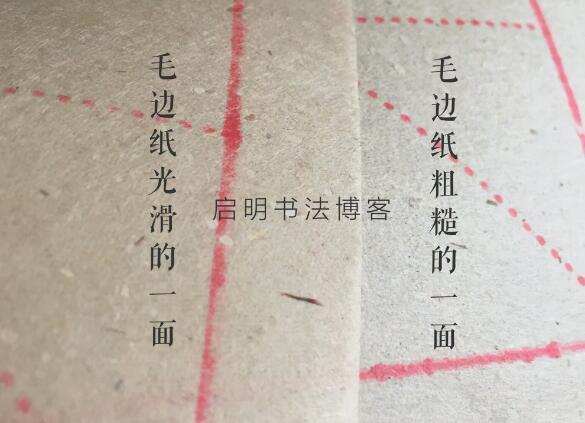 毛边纸光滑的一面
启明书法博客
毛边纸粗糙的一面